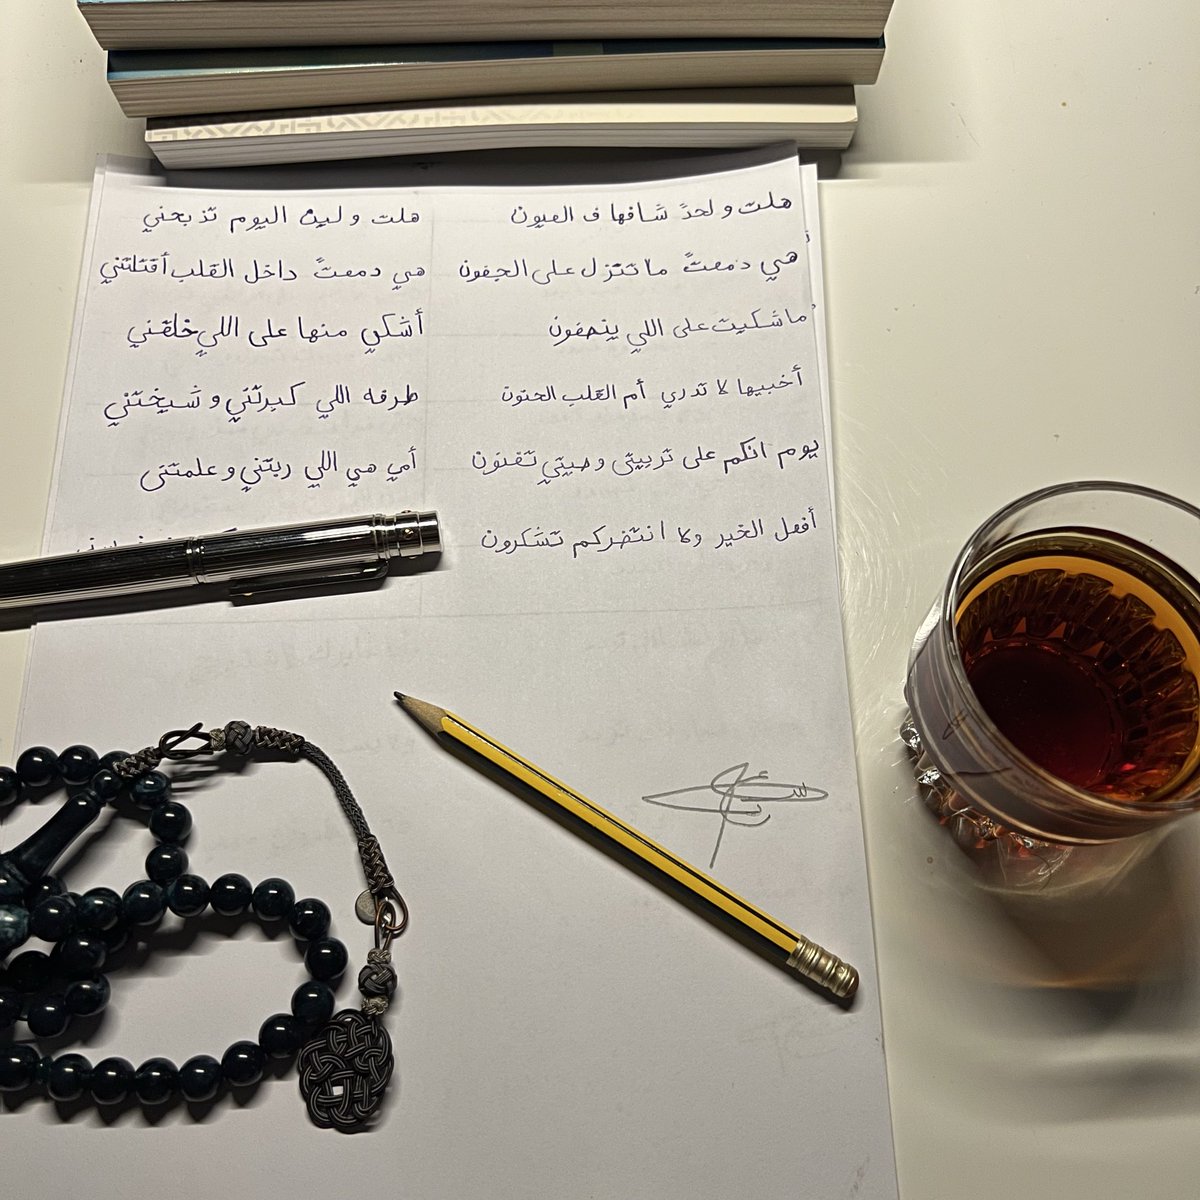 هلت و لحدً شافها ف العيون هلت و ليت اليوم تذبحني
هي دمعتً ما تنزل على الجفون هي دمعتً داخل القلب أقتلتني
ما شكيت على اللي ينصفون أشكي منها على اللي خلقني
أخبيها لا تدري أم القلب الحنون طرفه اللي كبرتني و شيختني
يوم انكم على تربيتي وصيتي تفنون أمي هي اللي ربتني و علمتني
أفعل الخير ولا انتضركم تشكرون